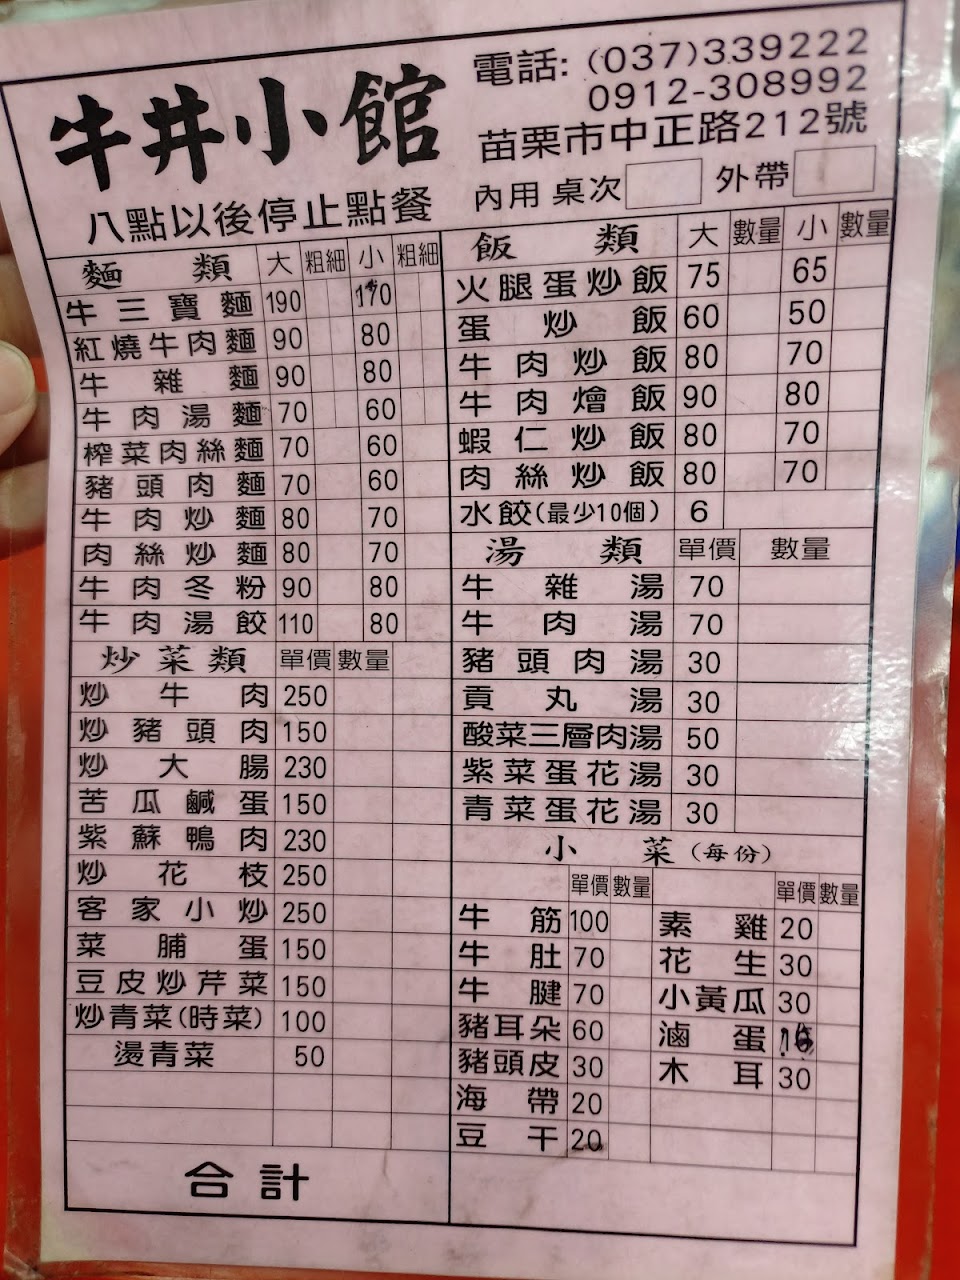 牛井小館
八點以後停止點餐
電話: (037)339222
0912-308992
苗栗市中正路212號
內用 桌次 外帶
麵類 大 粗 細 小 粗 細
牛三寶麵 190 170
紅燒牛肉麵 90 80
牛雜麵 90 80
牛肉湯麵 70 60
榨菜肉絲麵 70 60
豬頭肉麵 70 60
牛肉炒麵 80 70
肉絲炒麵 80 70
牛肉冬粉 90 80
牛肉湯餃 110 80
炒菜類 單價 數量
炒牛肉 250
炒豬頭肉 150
炒大腸 230
苦瓜鹹蛋 150
紫蘇鴨肉 230
炒花枝 250
客家小炒 250
菜脯蛋 150
豆皮炒芹菜 150
炒青菜(時菜) 100
燙青菜 50
合計
飯類 大 數量 小 數量
火腿蛋炒飯 75 65
蛋炒飯 60 50
牛肉炒飯 80 70
牛肉燴飯 90 80
蝦仁炒飯 80 70
肉絲炒飯 80 70
水餃(最少10個) 6
湯類 單價 數量
牛雜湯 70
牛肉湯 70
豬頭肉湯 30
貢丸湯 30
酸菜三層肉湯 50
紫菜蛋花湯 30
青菜蛋花湯 30
小菜(每份)
單價 數量 單價 數量
牛筋 100 素雞 20
牛肚 70 花生 30
牛腱 70 小黃瓜 30
豬耳朵 60 滷蛋
豬頭皮 30 木耳 30
海帶 20
豆干 20